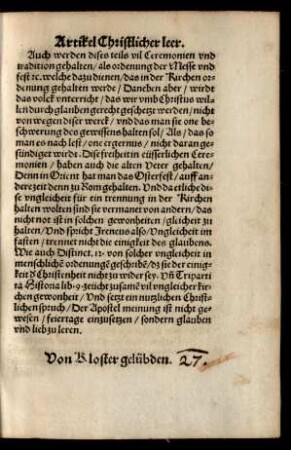 Artikel Christlicher leer.
Auch werden dises teils vil Ceremonien vnd
tradition gehalten/ als ordenung der Messe vnd
fest ꝛc. welche dazu dienen/ das in der Kirchen or-
denung gehalten werde/ Daneben aber/ wirdt
das volck vnterricht/ das wir vmb Christus wil-
len durch glauben gerecht geschetzt werden/ nicht
von wegen diser werck/ vnd das man sie one be-
schwerung des gewissens halten sol/ Als/ das so
man es nach lest/ one ergernus/ nicht daran ge-
sündiget wirdt. Dise freiheit in eüsserlichen Cere-
monien/ haben auch die alten Veter gehalten/
Denn in Orient hat man das Osterfest/ auff an-
dere zeit denn zu Rom gehalten. Vnd da etliche di-
se vngleicheit für ein trennung in der Kirchen
halten wolten sind sie vermanet von andern/ das
nicht not ist in solchen gewonheiten/ gleicheit zu
halten/ Vnd spricht Ireneus also/ Vngleicheit im
fasten/ trennet nicht die einigkeit des glaubens.
Wie auch Distinct. 12. von solcher vngleicheit in
menschlichē ordenungē geschribē/ dz sie der einig-
keit d̄ Christenheit nicht zu wider sey. Vn̄ Triparti
ta Historia lib. 9. zeücht zusamē vil vngleicher kir-
chen gewonheit/ Vnd setzt ein nutzlichen Christ-
lichen spruch/ Der Apostel meinung ist nicht ge-
wesen/ feiertage einzusetzen/ sondern glauben
vnd lieb zu leren.
Von Kloster gelübden. 27.